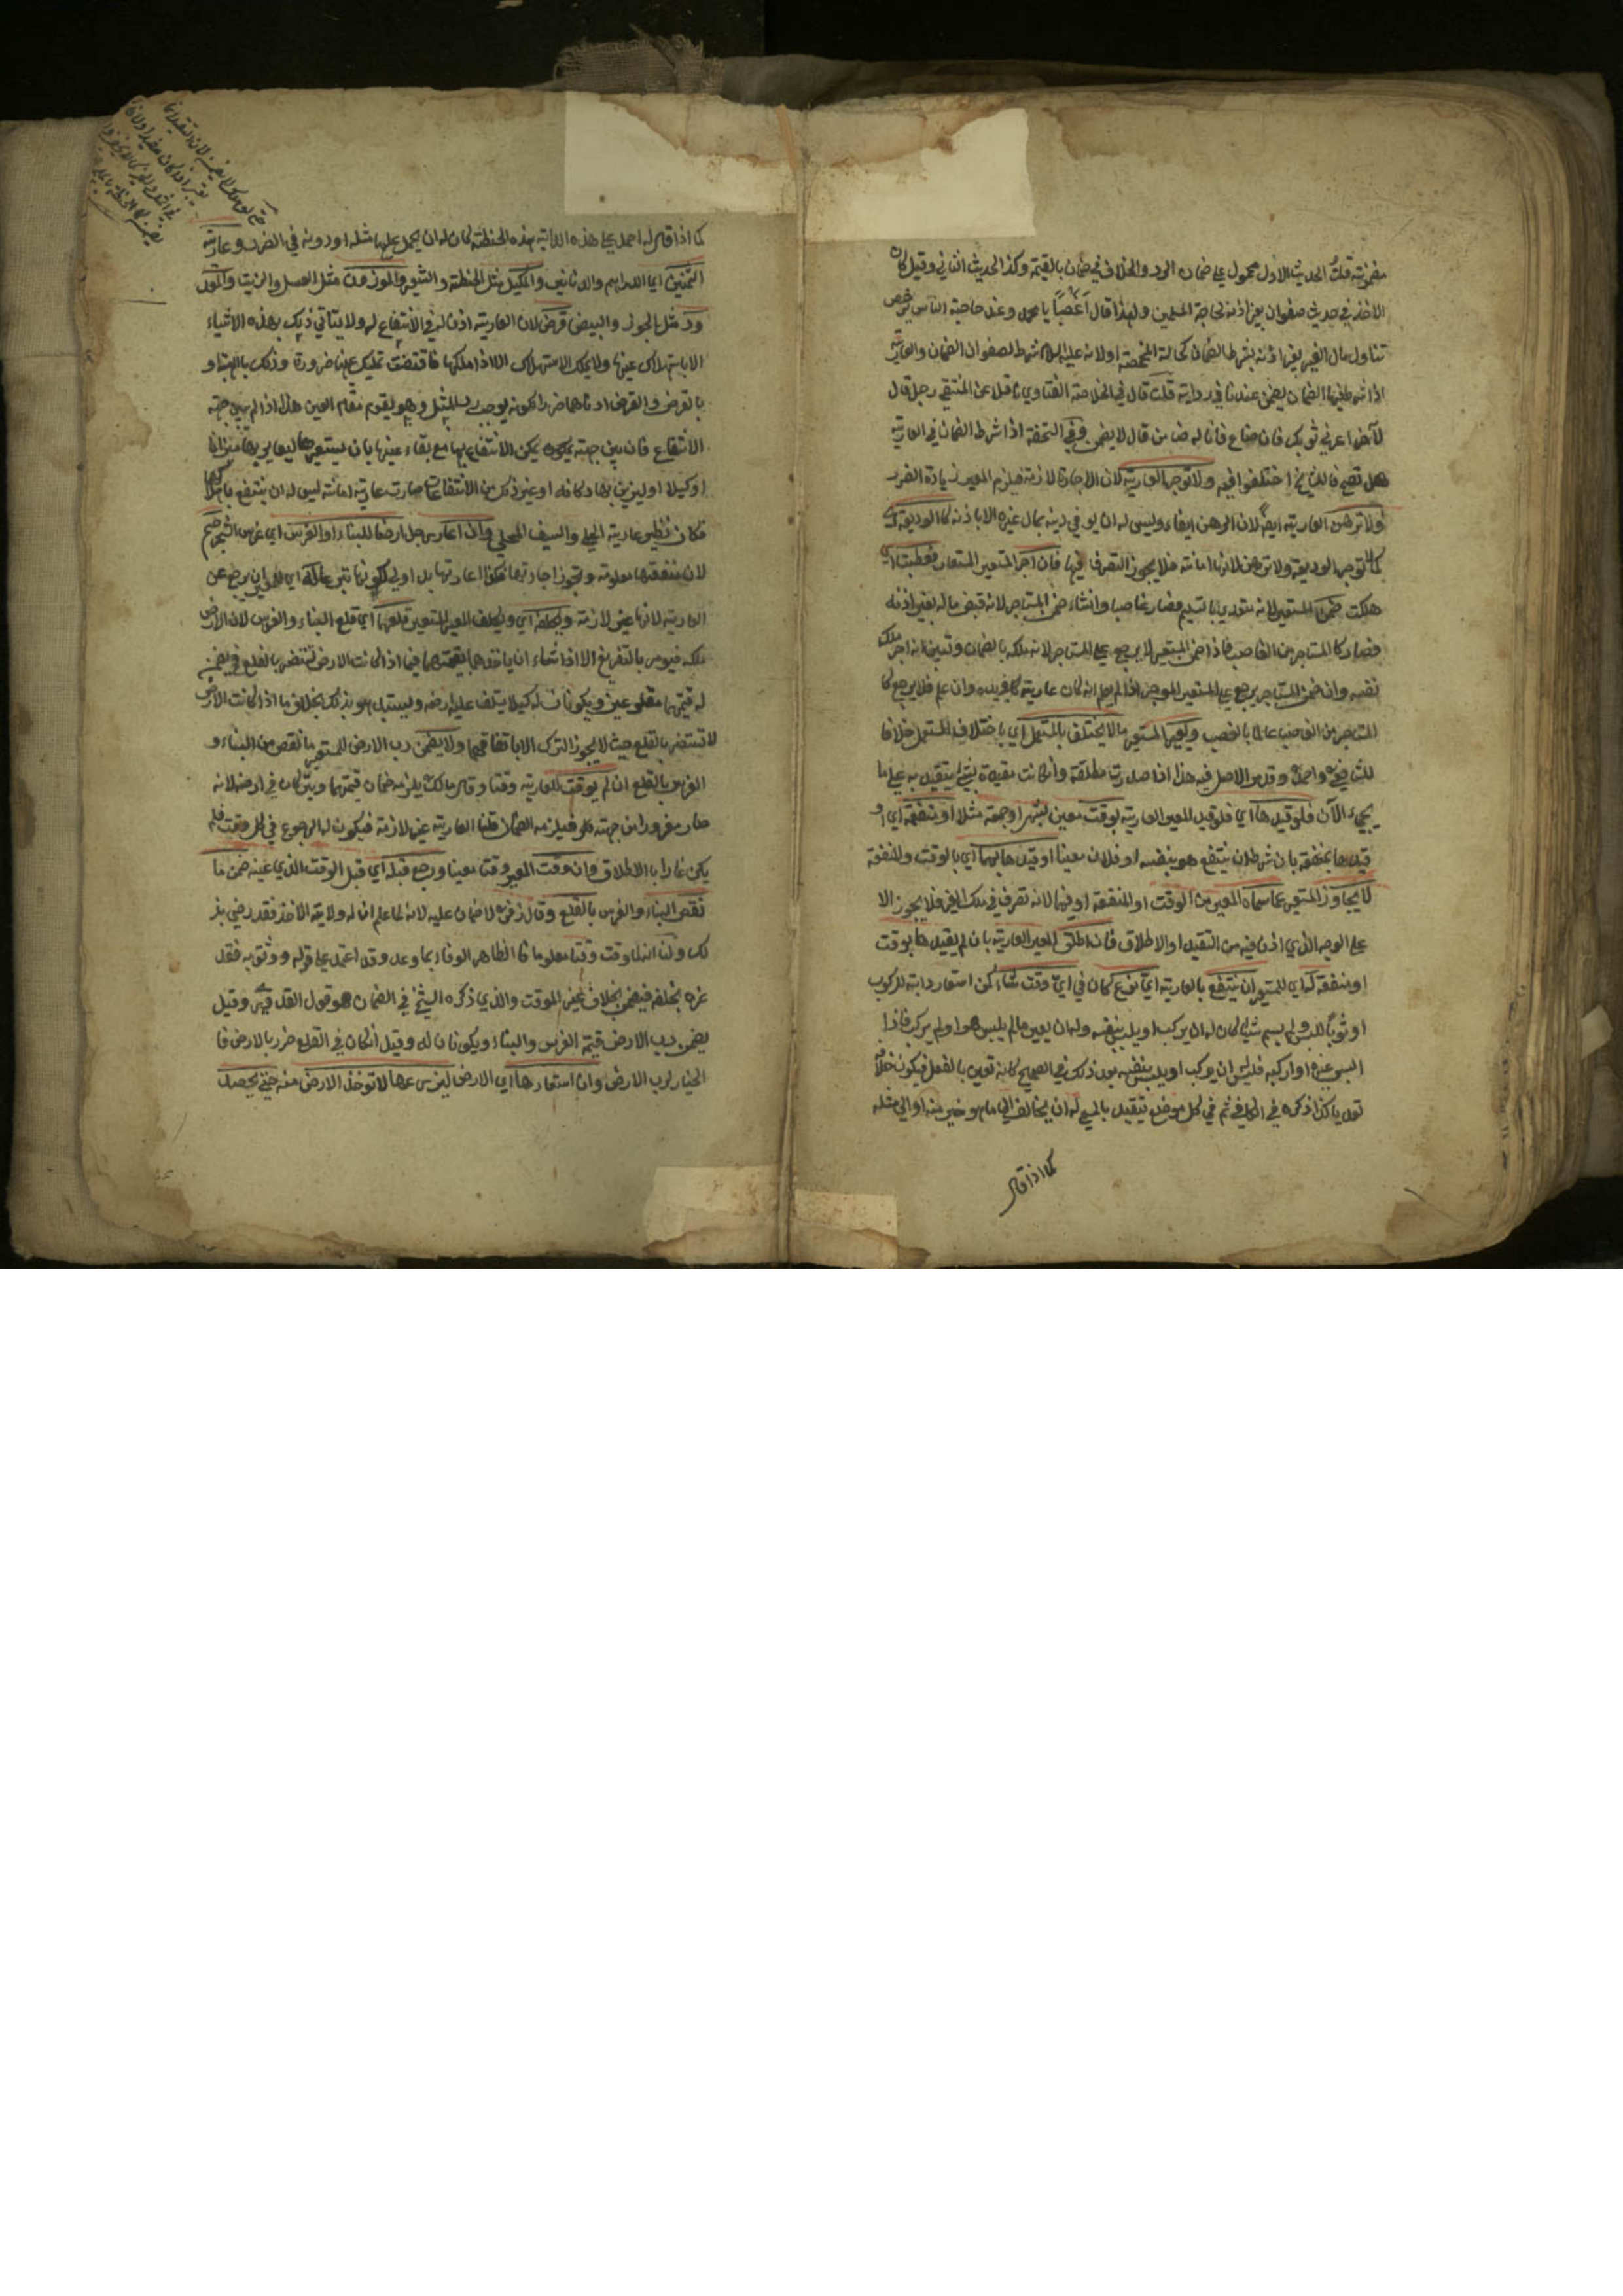 مضمونة قلت الحديث الاول محمول على ضمان الرد والخلاف في ضمان بالقيمة وكذا الحديث الثاني وقيل كان
الاخذ في حديث صفوان بغير اذنه لحاجة المسلمين ولهذا قال أغصباً يا محمد وعند حاجة الناس يرخص
تناول مال الغير بغير اذنه بشرط الضمان كحالة المخمصة اولانه عليه السلام شرط لصفوان الضمان والعارية
اذا شرط فيها الضمان يضمن عندنا في رواية قلت قال في الخلاصة الفتاوي ناقلا عن المنتقي رجل قال
لآخر اعرني ثوبك فان ضاع فانا له ضامن قال لا يضمن وفي التحفة اذا شرط الضمان في العارية
هل تصح فالمشايخ اختلفوا فيه ولا توجر العارية لان الاجارة لازمة فيلزم المعير زيادة الضرر
ولا ترهن العارية ايضاً لان الرهن ايفاء وليس له ان يوفي دينه بمال غيره الا باذنه كالوديعة اي
كما لا توجر الوديعة ولا ترهن لانها امانة فلا يجوز التصرف فيها فان اجر المستعير المستعار فعطبت اي
هلكت ضمن المستعير لانه متعدي بالتسليم فصار غاصبا وان شاء ضمن المستاجر لانه قبض ماله بغير اذنه
فصار كالمستاجر من الغاصب فاذا ضمن المستعير لا يرجع على المستاجر لانه ملكه بالضمان وتبين انه اجر ملك
نفسه وان ضمن المستاجر يرجع على المستعير الموجر اذا لم يعلم انه كان عارية في يده وان علم فلا يرجع كا
لمستاجر من الغاصب عالما بالغصب ويعير المستعير ما لا يختلف بالمستعمل اي باختلاف المستعمل خلافا
للشافعي واحمد وقد مر الاصل فيه هذا اذا صدرت مطلقة وان كانت مقيدة بشئ يتقيد به على ما
يجيء الآن فلو قيدها اي فلو قيد المعير العارية بوقت معين كشهر او جمعة مثلا او منفعة اي او
قيدها بمنفعة بان شرط ان ينتفع هو بنفسه او فلان معينا او قيدها بهما اي بالوقت والمنفعة
لا يتجاوز المستعير عما سماه المعير من الوقت او المنفعة او فيهما لانه تصرف في ملك الغير فلا يجوز الا
على الوجه الذي اذن فيه من التقييد او الاطلاق فان اطلق المعير العارية بان لم يقيدها بوقت
او منفعة له اي للمستعير ان ينتفع بالعارية اي نوع كان في اي وقت شاء كمن استعار دابة للركوب
او ثوبا للبس ولم يسم شيئا كان له ان يركب او يلبس بنفسه وله ان يعير ما لم يلبس هو او لم يركب فاذا
البس غيره او اركبه فليس له ان يركب او يلبس بنفسه بعد ذلك في الصحيح كانه تعين بالفعل فيكون خلافه
تعديا كذا ذكره في الكافي ثم في كل موضع تقيد بالمسمى له ان يخالف الى ما هو خير منه او الى مثله
كما اذا قال
كما اذا قال له احمل على هذه الدابة هذه الحنطة كان له ان يحمل عليها مثله او دونه في الضرر وعارية
الثمنين اي الدراهم والدنانير والمكيل مثل الحنطة والشعير والموزون مثل العسل والزيت والمعد
ود مثل الجوز والبيض قرض لان العارية اذن له في الانتفاع له ولا يتاتي ذلك بهذه الاشياء
الا باستهلاك عينها ولا يملك الاستهلاك الا اذا ملكها فاقتضت تمليك عينها ضرورة وذلك بالهبة او
بالقرض والقرض ادناهما ضررا لكونه يوجب رد المثل وهو يقوم مقام العين هذا اذا لم يبين جهة
الانتفاع فان بين جهة يمكن الانتفاع بها مع بقاء عينها بان يستعيرها ليعاير بها ميزانا
او كيلا او ليزين بها دكانه او غير ذلك من الانتفاعات صارت عارية امانة ليس له ان ينتفع باهلاكها
فكان نظير عارية الحلي والسيف المحلي وان اعار رجل ارضا للبناء او الغرس اي غرس الشجر صح
لان منفعتها معلومة وتجوز اجارتها فكذا اعارتها بل اولي لكونها تبرعا وله اي للمعير ان يرجع عن
العارية لانها غير لازمة ويكلفه اي ويكلف المعير المستعير قلعهما اي قلع البناء والغرس لان الارض
ملكه فيومر بالتفريغ الا اذا شاء ان ياخذهما بقيمتهما فيما اذا كانت الارض تستضر بالقلع فيضمن
له قيمتهما مقلوعين ويكونان له كيلا يتلف عليه ارضه ويستبد هو بذلك بخلاف ما اذا كانت الارض
لا تستضر بالقلع حيث لا يجوز الترك الا باتفاقهما ولا يضمن رب الارض للمستعير ما نقص من البناء و
الغرس بالقلع ان لم يوقت للعارية وقتا وقال مالك يلزمه ضمان قيمتهما ويتركان في ارضه لانه
صار مغرورا من جهته فيلزمه الضمان قلنا العارية غير لازمة فيكون له الرجوع في كل وقت فلم
يكن غارا بالاطلاق وان وقت المعير وقتا معينا ورجع قبله اي قبل الوقت الذي عينه ضمن ما
نقص البناء والغرس بالقلع وقال زفر لا ضمان عليه لانه لما علم ان له ولاية الاخذ فقد رضي بذ
لك ولنا انه لما وقت وقتا معلوما فالظاهر الوفاء بما وعد وقد اعتمد على قوله ووثق به فقد
غره بخلفه فيضمن بخلاف غير الموقت والذي ذكره الشيخ في الضمان هو قول القدوري وقيل
يضمن رب الارض قيمة الغرس والبناء ويكونان له وقيل ان كان في القلع ضرر بالارض فا
لخيار لرب الارض وان استعارها اي الارض ليزرعها لا توخذ الارض منه حتى يحصد